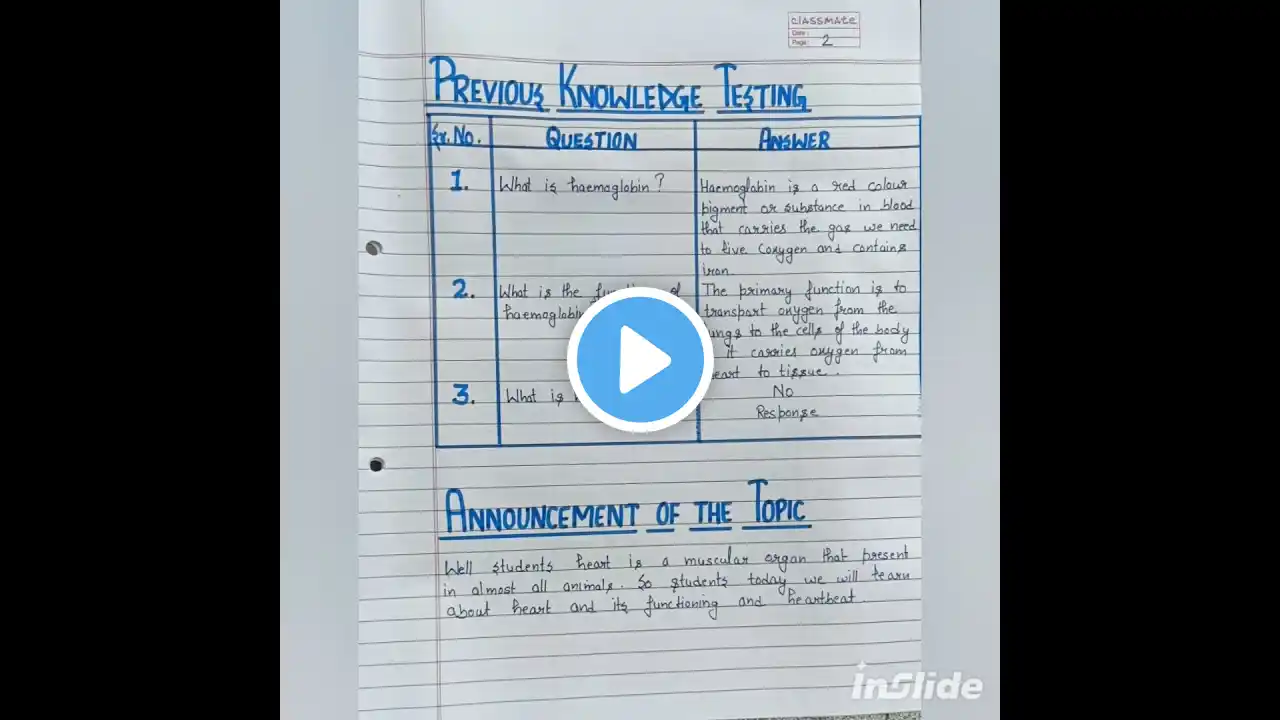 CLASSMATE
Date :
Page : 2
PREVIOUS KNOWLEDGE TESTING
Sr. No. QUESTION ANSWER
1. What is haemoglobin? Haemoglobin is a red colour
pigment or substance in blood
that carries the gas we need
to live (oxygen and contains
iron.
2. What is the of The primary function is to
haemoglobin transport oxygen from the
to the cells of the body
it carries oxygen from
to tissue.
3. What is No
Response
ANNOUNCEMENT OF THE TOPIC
Well students heart is a muscular organ that present
in almost all animals. So students today we will learn
about heart and its functioning and heartbeat
InSlide